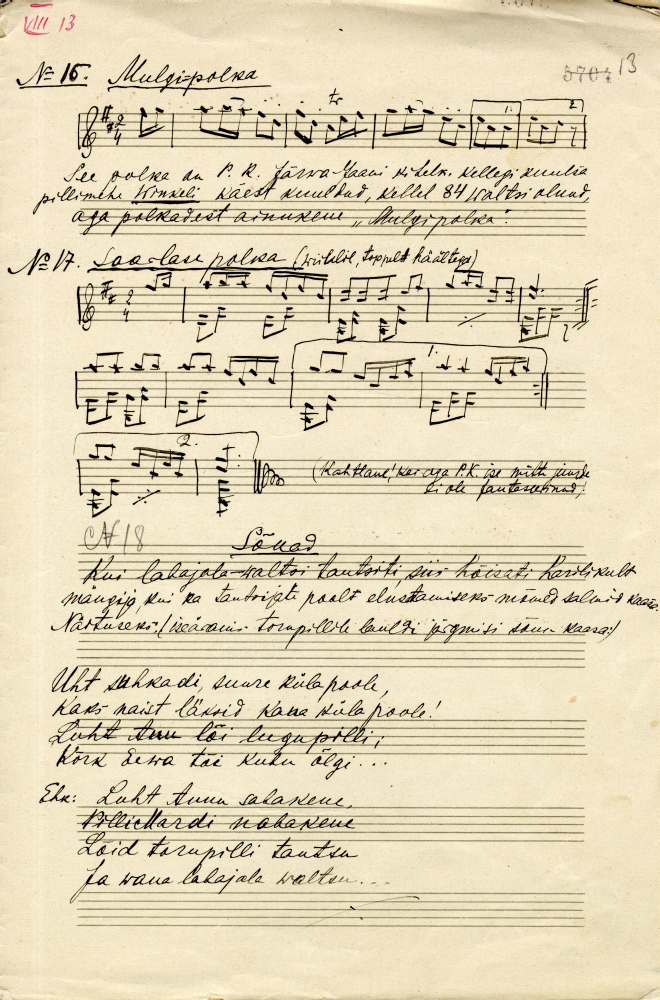 VIII 13
5704 13
№ 16. Mulgi-polka
tr
1. 2.
See polka on P. K. Järwa-Jaani kihelk. kellegi kuulsa
pillimehe Winkeli käest kuuldud, kellel 84 waltsi olnud,
aga polkadest ainukene „Mulgi polka".
№ 17. Saa-lase polka (wiiulil, toppelt häältega)
2/4
1.
2.
(Kahtlane! kas aga P.K. ise mitte juurde
ei ole fantaseerinud!
N 18
Sõnad
Kui labajala-waltsi tantsiti, siis hõisati harilikult
mängija, kui ka tantsijate poolt elustamiseks mõned salmid kaasa.
Näituseks: (iseäranis torupillile lauldi järgmisi sõnu kaasa:)
Uht suhkadi, suure küla poole,
Kaks naist läksid kana küla poole!
Luht Annu lõi lugupilli;
Kõrk Eewa tõi kubu õlgi...
Ehk: Luht Annu sabakene,
Pilli Mardi nabakene
Lõid torupilli tantsu
Ja wana labajala waltsu...